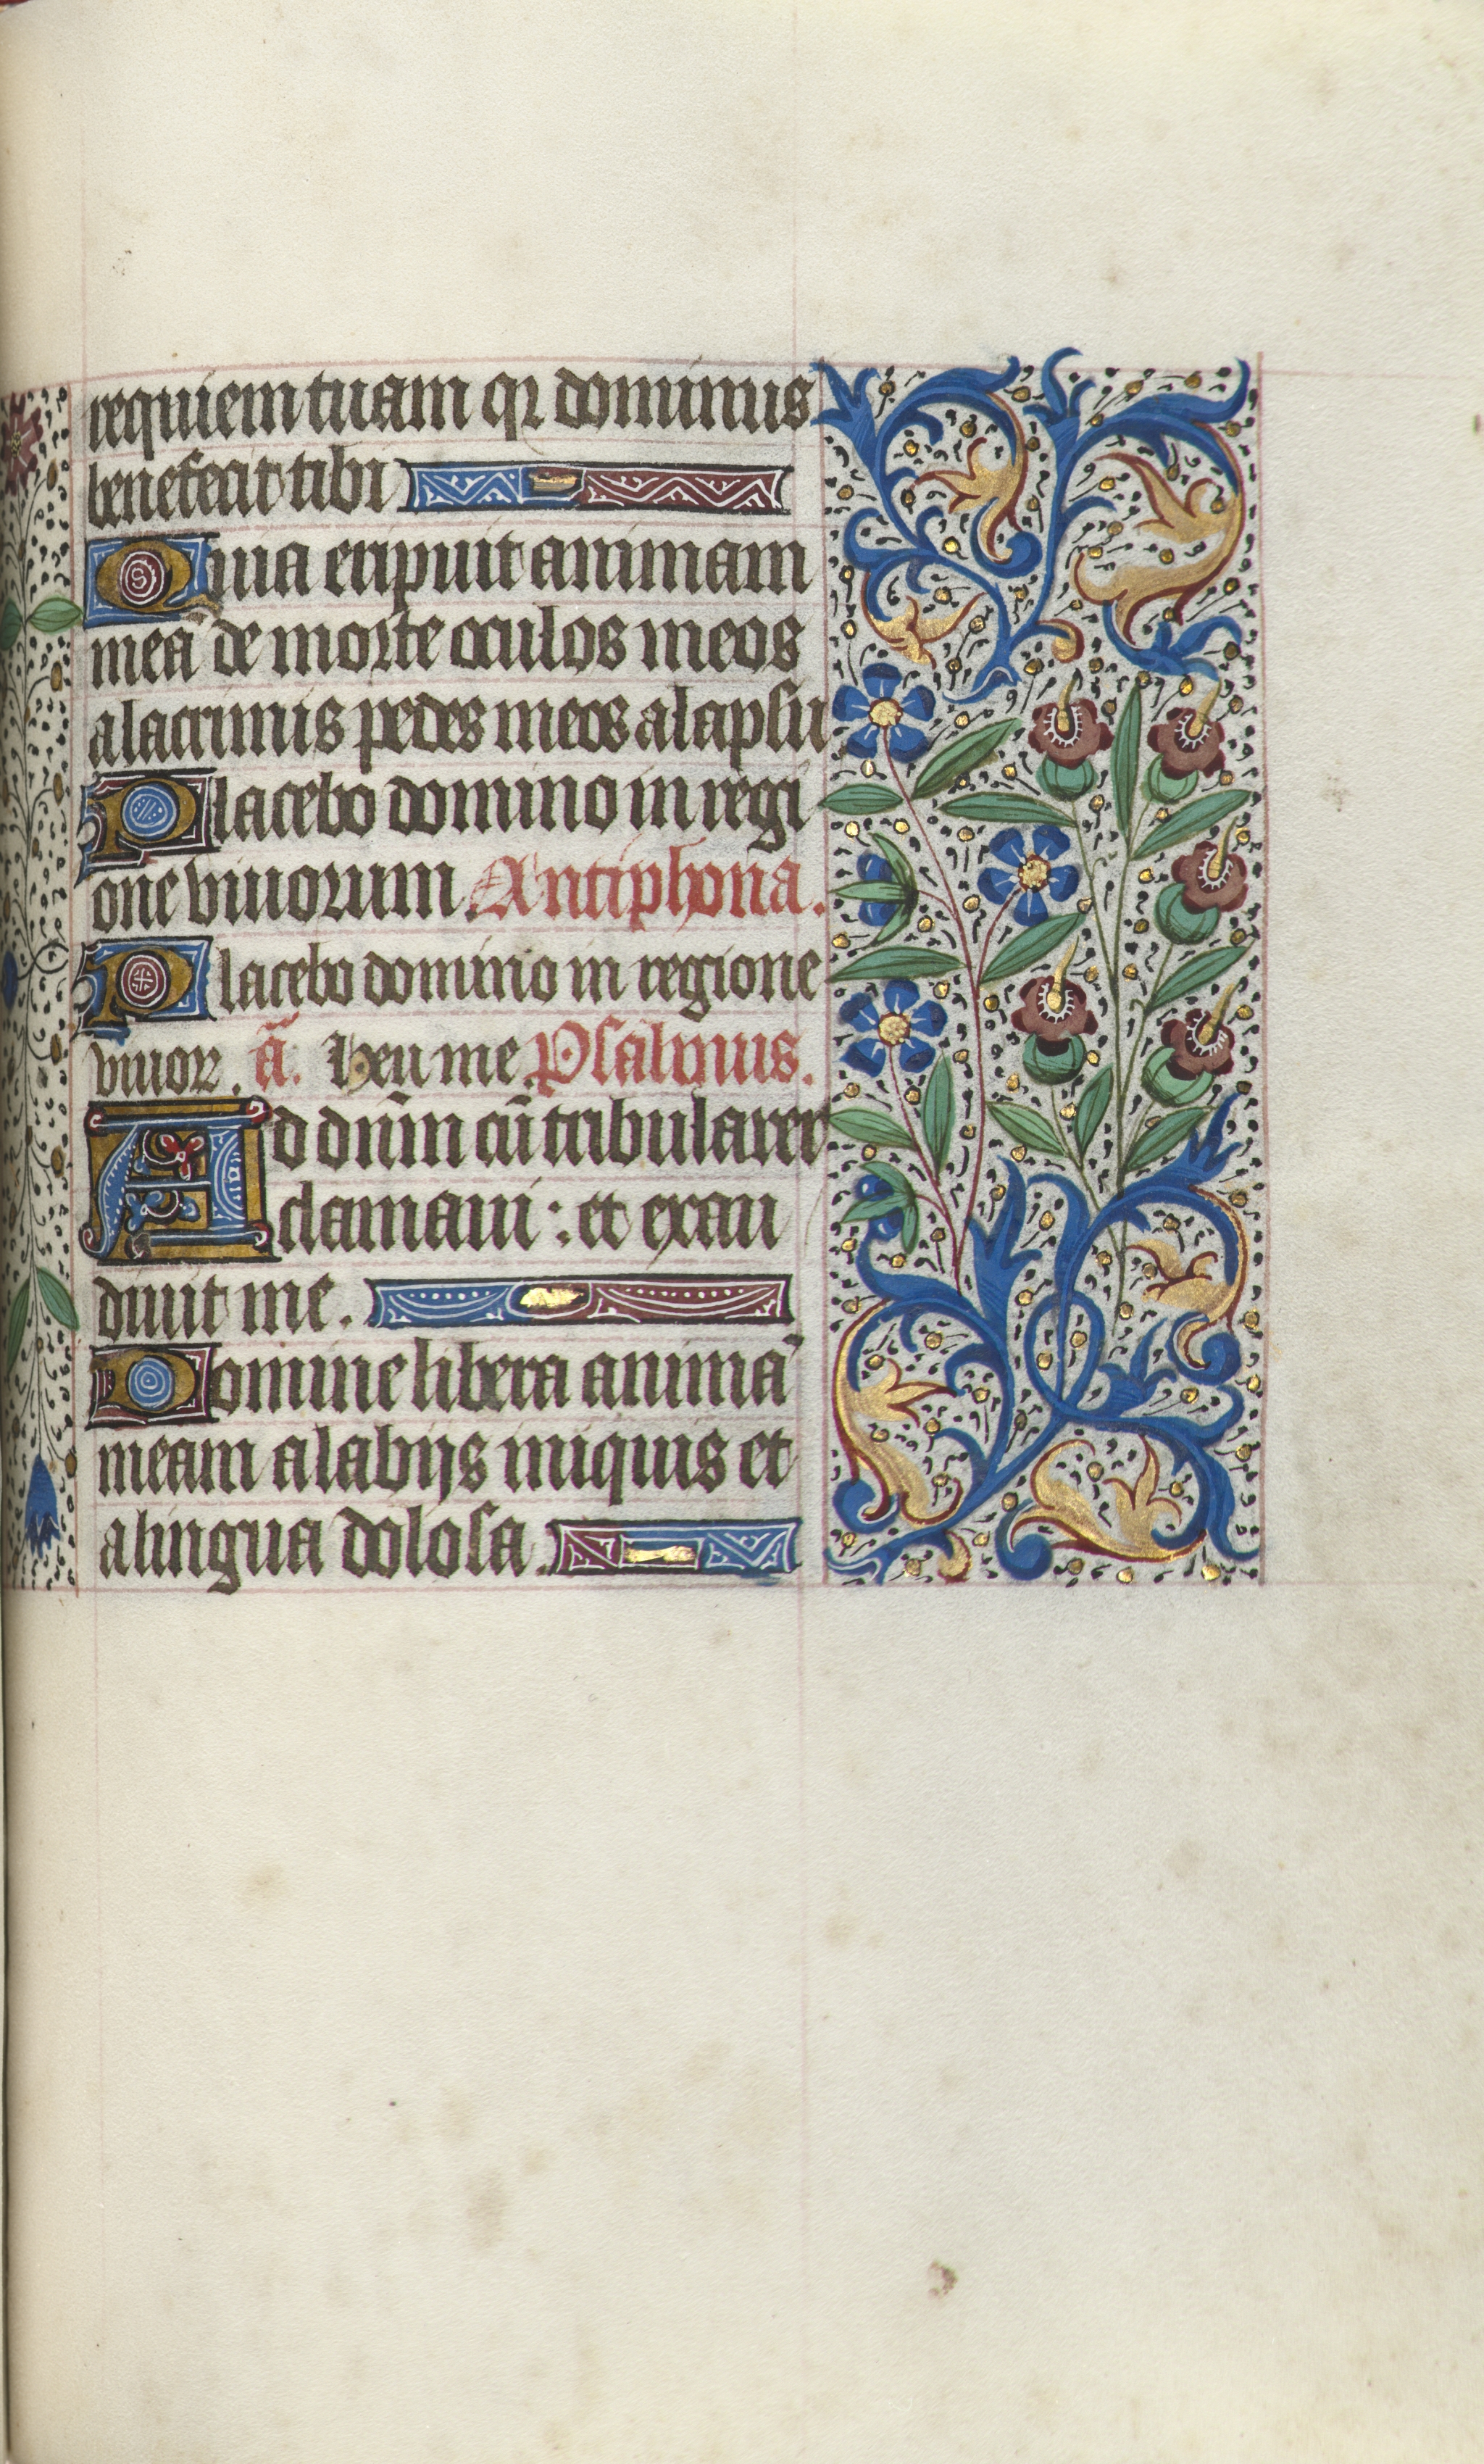 requiem tuam qꝛ dominus
benefecit tibi
Quia eripuit animam
meā de morte oculos meos
a lacrimis pedes meos a lapsu
Placebo domino in regi
one viuorum. Antiphona.
Placebo domino in regione
viuoꝝ. ā. Heu me. Psalmus.
Ad dn̄m cū tribularer
clamaui : et exau
diuit me.
Domine libera animā
meam a labijs iniquis et
a lingua dolosa.